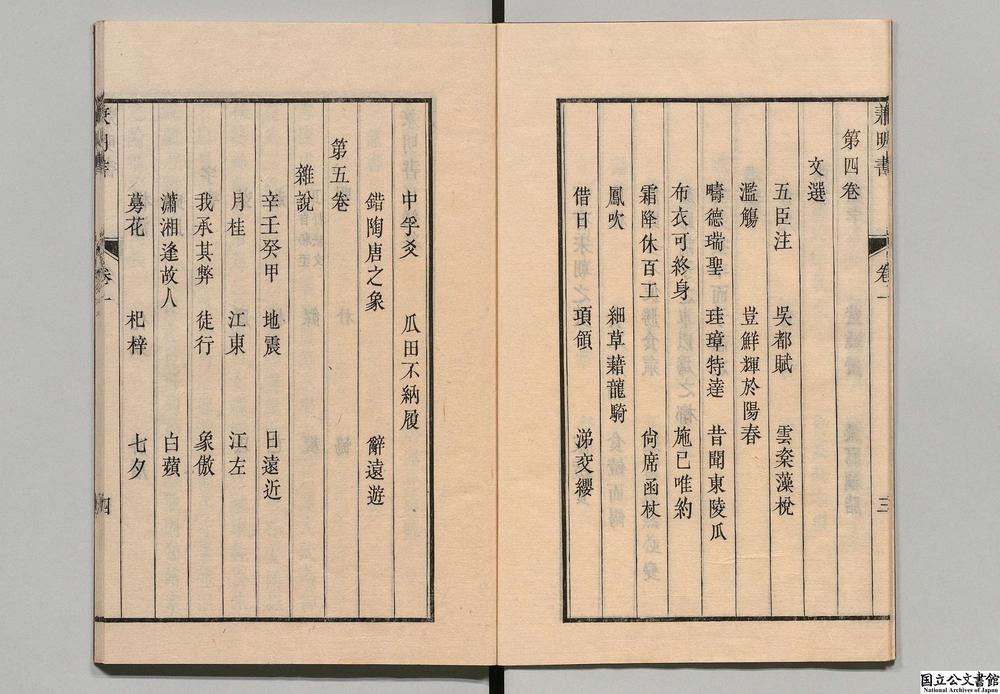 兼明書
卷一
三
第四卷
文選
五臣注 吳都賦 雲楶藻梲
濫觴 豈鮮輝於陽春
疇德瑞聖 珪璋特達 昔聞東陵瓜
布衣可終身 施已唯約
霜降休百工 尙席函杖
鳳吹 細草藉龍騎
借日 項領 涕交纓
中孚爻 瓜田不納履
錯陶唐之象 辭遠遊
第五卷
雜說
辛壬癸甲 地震 日遠近
月桂 江東 江左
我承其弊 徒行 象傲
瀟湘逢故人 白蘋
蕣花 杞梓 七夕
兼明書
卷一
四
国立公文書館
National Archives of Japan